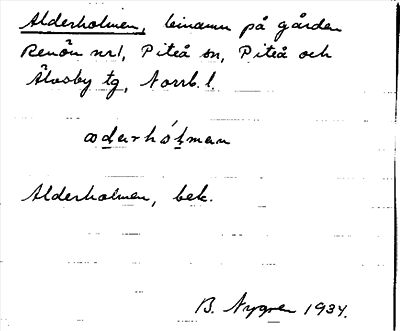 Alderholmen, binamn på gården
Renön nr 1, Piteå sn, Piteå och
Älvsby tg, Norrb. l.
Alderholmen, bek.
B. Nygren 1934.